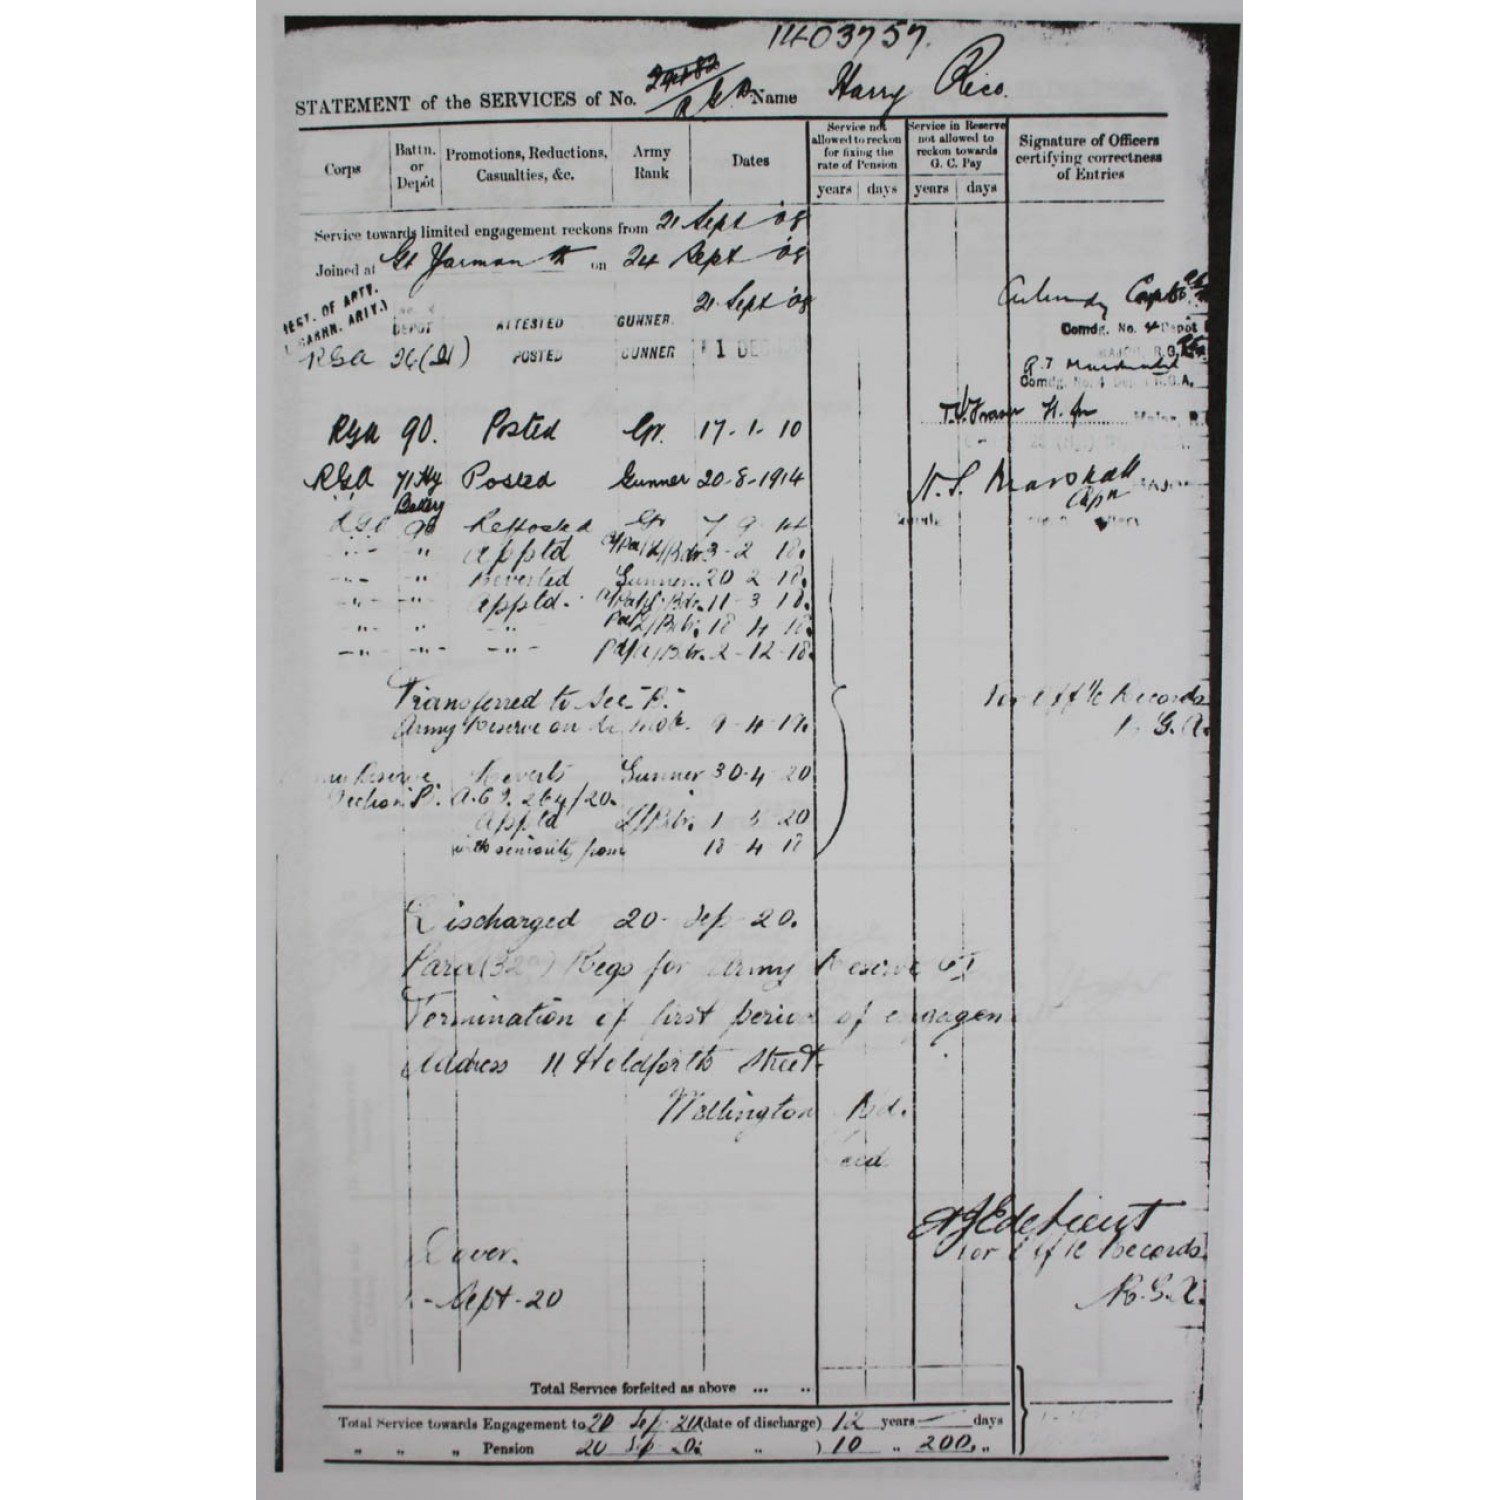 1403757.
STATEMENT of the SERVICES of No. R.G.A. Name Harry Rico.
Corps
Battn. or Depôt
Promotions, Reductions, Casualties, &c.
Army Rank
Dates
Service not allowed to reckon for fixing the rate of Pension
years days
Service in Reserve not allowed to reckon towards G. C. Pay
years days
Signature of Officers certifying correctness of Entries
Service towards limited engagement reckons from 21 Sept '08
Joined at Gt Yarmouth on 24 Sept '08
REGT. OF ARTY.
GARRN. ARTY.)
DEPOT ATTESTED GUNNER. 21 Sept '08
Comdg. No. 4 Depot
RGA 26 (21) POSTED GUNNER 1 DEC
MAJOR, R.G.A.
Comdg. No. 4 R.G.A.
RGA 90. Posted Gr. 17-1-10
RGA 71 Hy Battery Posted Gunner 20-8-1914 Marshall
RGA 90 Reposted Gr 7 9 14
-"- " appltd 3-2 18.
-"- -"- Reverted Gunner 20 2 18.
-"- -"- appltd. 11-3 18.
"- -"- -"- 18 4 18.
-"- -"- -"- 2-12-18.
Transferred to Sec. "B"
Army Reserve on demob. 9-4-19.
For Off i/c Records
R.G.A.
Reserve Reverts Gunner 30-4-20
Section B. A.C.I. 264/20.
appltd L/Bdr. 1 5 20
with seniority from 18 4 18
Discharged 20-Sep-20.
Para (32 ) Regs for Army Reserve
Termination of first period of engagem
Address 11 Holdforth Street
Wellington Rd.
Lieut
For Off i/c Records
R.G.A.
Dover.
-Sept-20
Total Service forfeited as above ... ..
Total Service towards Engagement to 20 Sep 20 (date of discharge) 12 years — days
" " " Pension 20 Sep 20 " ) 10 " 200. "